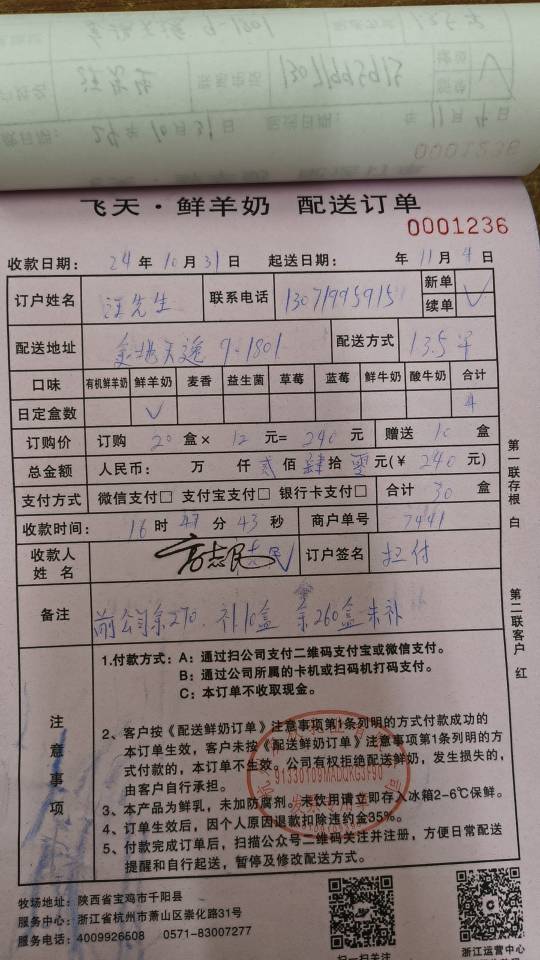 飞天·鲜羊奶 配送订单
0001236
收款日期： 24 年 10 月 31 日 起送日期： 年 11 月 4 日
订户姓名 汪先生 联系电话 13071995915 新单 续单 ✓
配送地址 天逸 9-1801 配送方式 13.5
口味 有机鲜羊奶 鲜羊奶 麦香 益生菌 草莓 蓝莓 鲜牛奶 酸牛奶 合计
日定盒数 ✓ 4
订购价 订购 20 盒× 12 元= 240 元 赠送 10 盒
总金额 人民币： 万 仟 贰 佰 肆 拾 零 元(￥ 240 元)
支付方式 微信支付□ 支付宝支付□ 银行卡支付□ 合计 30 盒
收款时间： 16 时 47 分 43 秒 商户单号 7441
收款人姓名 志民 订户签名 扫付
备注 前公司余270. 补10盒 余260盒未补
注意事项
1.付款方式：A：通过扫公司支付二维码支付宝或微信支付。
B：通过公司所属的卡机或扫码机打码支付。
C：本订单不收取现金。
2、客户按《配送鲜奶订单》注意事项第1条列明的方式付款成功的
本订单生效，客户未按《配送鲜奶订单》注意事项第1条列明的方
式付款的，本订单不生效。公司有权拒绝配送鲜奶，发生损失的，
由客户自行承担。
3、本产品为鲜乳，未加防腐剂。未饮用请立即存入冰箱2-6℃保鲜。
4、订单生效后，因个人原因退款扣除违约金35%。
5、付款完成订单后，扫描公众号二维码关注并注册，方便日常配送
提醒和自行起送，暂停及修改配送方式。
91330109MADQKG3F90
第一联存根 白
第二联客户 红
牧场地址：陕西省宝鸡市千阳县
服务中心：浙江省杭州市萧山区崇化路31号
服务电话：4009926508 0571-83007277
扫一扫关注
浙江运营中心